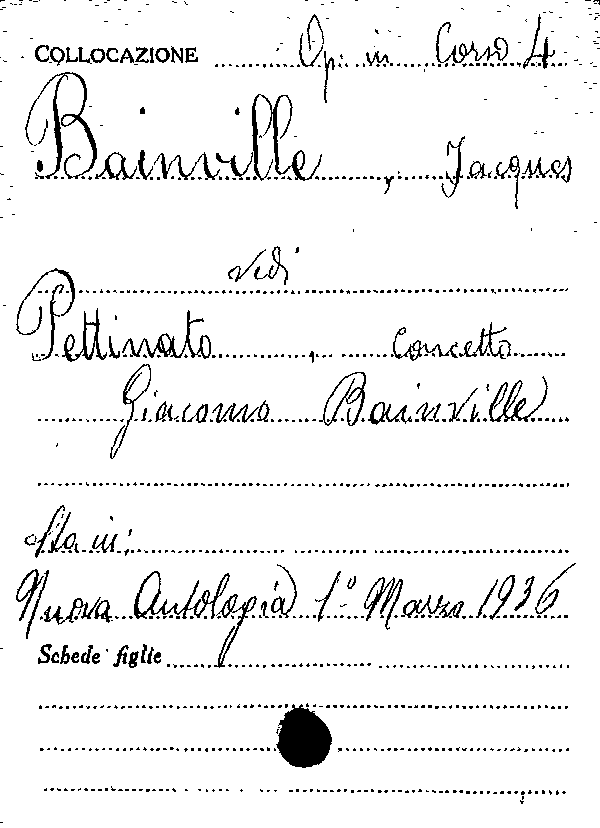 COLLOCAZIONE Op. in Corso 4
Bainville, Jacques
vedi
Pettinato, Concetto
Giacomo Bainville
Sta in:
Nuova Antologia 1º Marzo 1936
Schede figlie